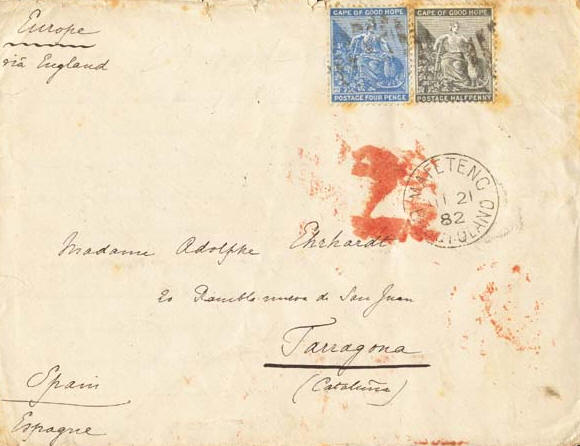 Europe
via England
CAPE OF GOOD HOPE
POSTAGE FOUR PENCE
CAPE OF GOOD HOPE
POSTAGE HALFPENNY
MAFETENG
21
82
Madame Adolphe Ehrhardt
20 Rambla nueva de San Juan
Tarragona
(Cataluña)
Spain
Espagne